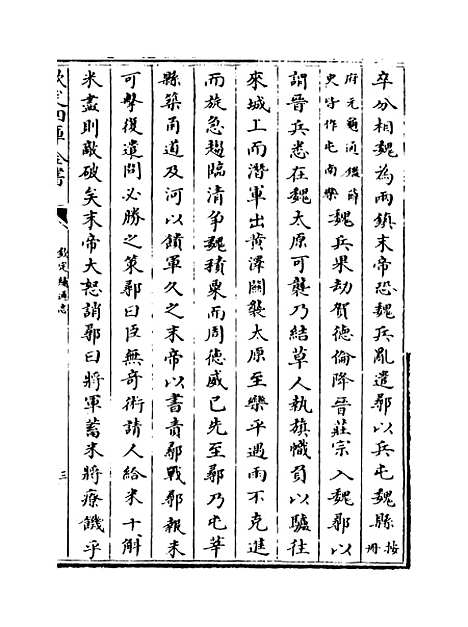 卒分相魏為兩鎮末帝恐魏兵亂遣鄩以兵屯魏縣按冊
府元龜通鑑薛
史字作屯南樂魏兵果劫賀德倫降晉莊宗入魏鄩以
謂晉兵悉在魏太原可襲乃結草人執旗幟負以驢往
來城上而潛軍出黄澤關襲太原至樂平遇雨不克進
而旋急趨臨清争魏積粟而周徳威已先至鄩乃屯莘
縣築甬道及河以饋軍久之末帝以書責鄩戰鄩報未
可擊復遣問必勝之策鄩曰臣無竒術請人給米十斛
米盡則敵破矣末帝大怒誚鄩曰將軍蓄米將療饑乎
欽定四庫全書
欽定續通志
三